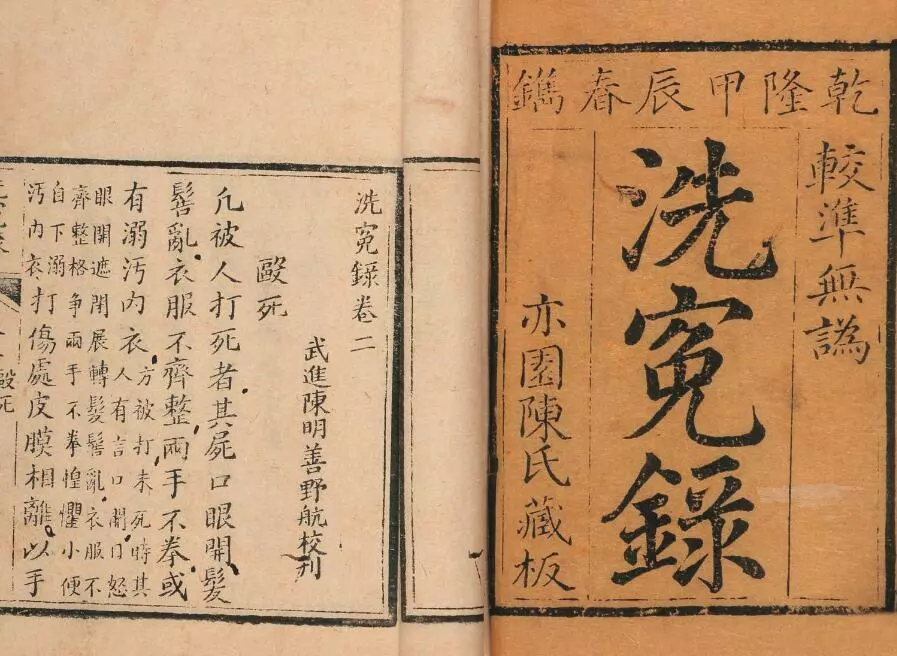 乾隆甲辰春鐫
較準無譌
洗寃錄
亦園陳氏藏板
洗寃錄卷二
武進陳明善野航校刊
毆死
凡被人打死者其屍口眼開髮
髻亂衣服不齊整兩手不拳或
有溺汚內衣方被打未死時其
人有言口開目怒
眼開遮閉展轉髮髻亂衣服不
齊整格爭兩手不拳惶懼小便
自下溺
汚內衣打傷處皮膜相離以手
毆死